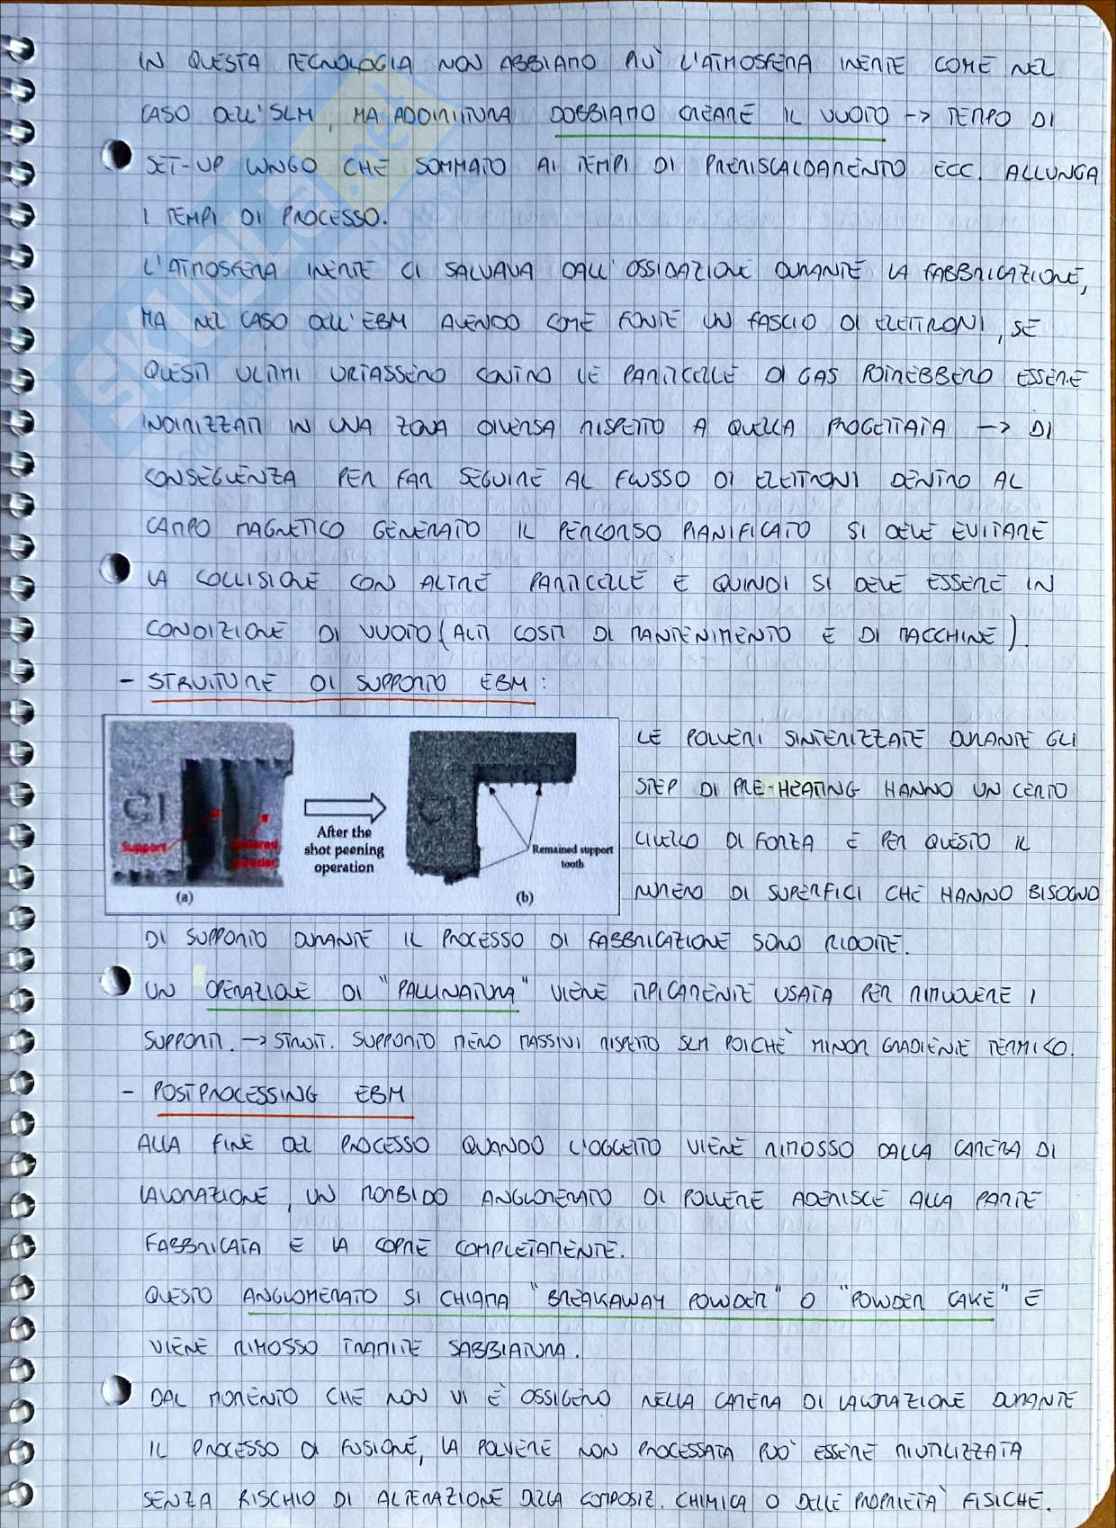 IN QUESTA TECNOLOGIA NON ABBIAMO PIÙ L'ATMOSFERA INERTE COME NEL
CASO DELL'SLM, MA ADDIRITTURA DOBBIAMO CREARE IL VUOTO -> TEMPO DI
SET-UP LUNGO CHE SOMMATO AI TEMPI DI PRERISCALDAMENTO ECC. ALLUNGA
I TEMPI DI PROCESSO.
L'ATMOSFERA INERTE CI SALVAVA DALL'OSSIDAZIONE DURANTE LA FABBRICAZIONE,
MA NEL CASO DELL'EBM AVENDO COME FONTE UN FASCIO DI ELETTRONI, SE
QUESTI ULTIMI URTASSERO CONTRO LE PARTICELLE DI GAS POTREBBERO ESSERE
INDIRIZZATI IN UNA ZONA DIVERSA RISPETTO A QUELLA PROGETTATA -> DI
CONSEGUENZA PER FAR SEGUIRE AL FLUSSO DI ELETTRONI DENTRO AL
CAMPO MAGNETICO GENERATO IL PERCORSO PIANIFICATO SI DEVE EVITARE
LA COLLISIONE CON ALTRE PARTICELLE E QUINDI SI DEVE ESSERE IN
CONDIZIONE DI VUOTO (ALTI COSTI DI MANTENIMENTO E DI MACCHINE).
- STRUTTURE DI SUPPORTO EBM:
LE POLVERI SINTERIZZATE DURANTE GLI
STEP DI PRE-HEATING HANNO UN CERTO
LIVELLO DI FORZA E PER QUESTO IL
NUMERO DI SUPERFICI CHE HANNO BISOGNO
C1
Support
Sintered
powder
(a)
After the
shot peening
operation
C1
Remained support
tooth
(b)
DI SUPPORTO DURANTE IL PROCESSO DI FABBRICAZIONE SONO RIDOTTE.
UN OPERAZIONE DI "PALLINATURA" VIENE TIPICAMENTE USATA PER RIMUOVERE I
SUPPORTI. -> STRUTT. SUPPORTO MENO MASSIVI RISPETTO SLM POICHÈ MINOR GRADIENTE TERMICO.
- POSTPROCESSING EBM
ALLA FINE DEL PROCESSO QUANDO L'OGGETTO VIENE RIMOSSO DALLA CAMERA DI
LAVORAZIONE, UN MORBIDO ANGLOMERATO DI POLVERE ADERISCE ALLA PARTE
FABBRICATA E LA COPRE COMPLETAMENTE.
QUESTO ANGLOMERATO SI CHIAMA "BREAKAWAY POWDER" O "POWDER CAKE" E
VIENE RIMOSSO TRAMITE SABBIATURA.
DAL MOMENTO CHE NON VI È OSSIGENO NELLA CAMERA DI LAVORAZIONE DURANTE
IL PROCESSO DI FUSIONE, LA POLVERE NON PROCESSATA PUÒ ESSERE RIUTILIZZATA
SENZA RISCHIO DI ALTERAZIONE DELLA COMPOSIZ. CHIMICA O DELLE PROPRIETÀ FISICHE.